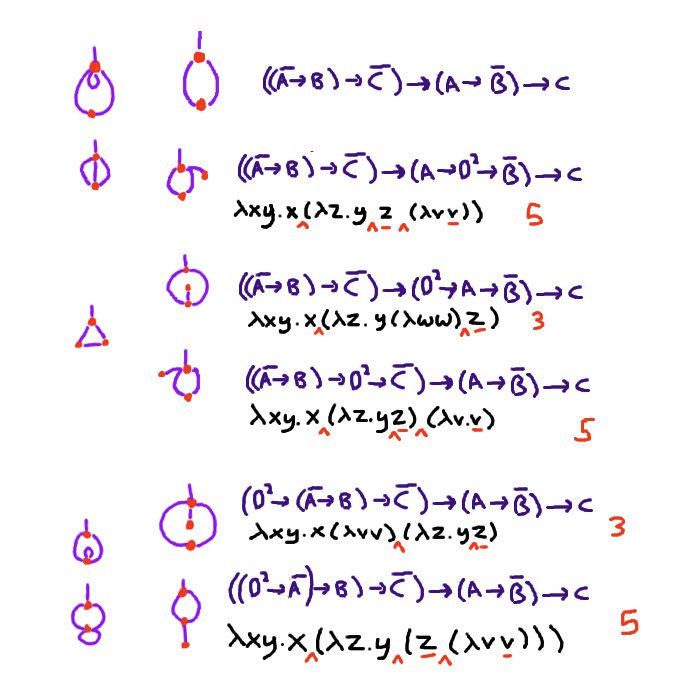 ((A̅→B)→C̅)→(A→B̅)→C
((A̅→B)→C̅)→(A→0²→B̅)→C
λxy.x(λz.y z (λvv)) 5
((A̅→B)→C̅)→(0²→A→B̅)→C
λxy.x(λz.y(λωω)z) 3
((A̅→B)→0²→C̅)→(A→B̅)→C
λxy.x(λz.yz)(λv.v) 5
(0²→(A̅→B)→C̅)→(A→B̅)→C
λxy.x(λvv)(λz.yz) 3
((0²→A̅)→B)→C̅)→(A→B̅)→C
λxy.x(λz.y(z(λvv))) 5